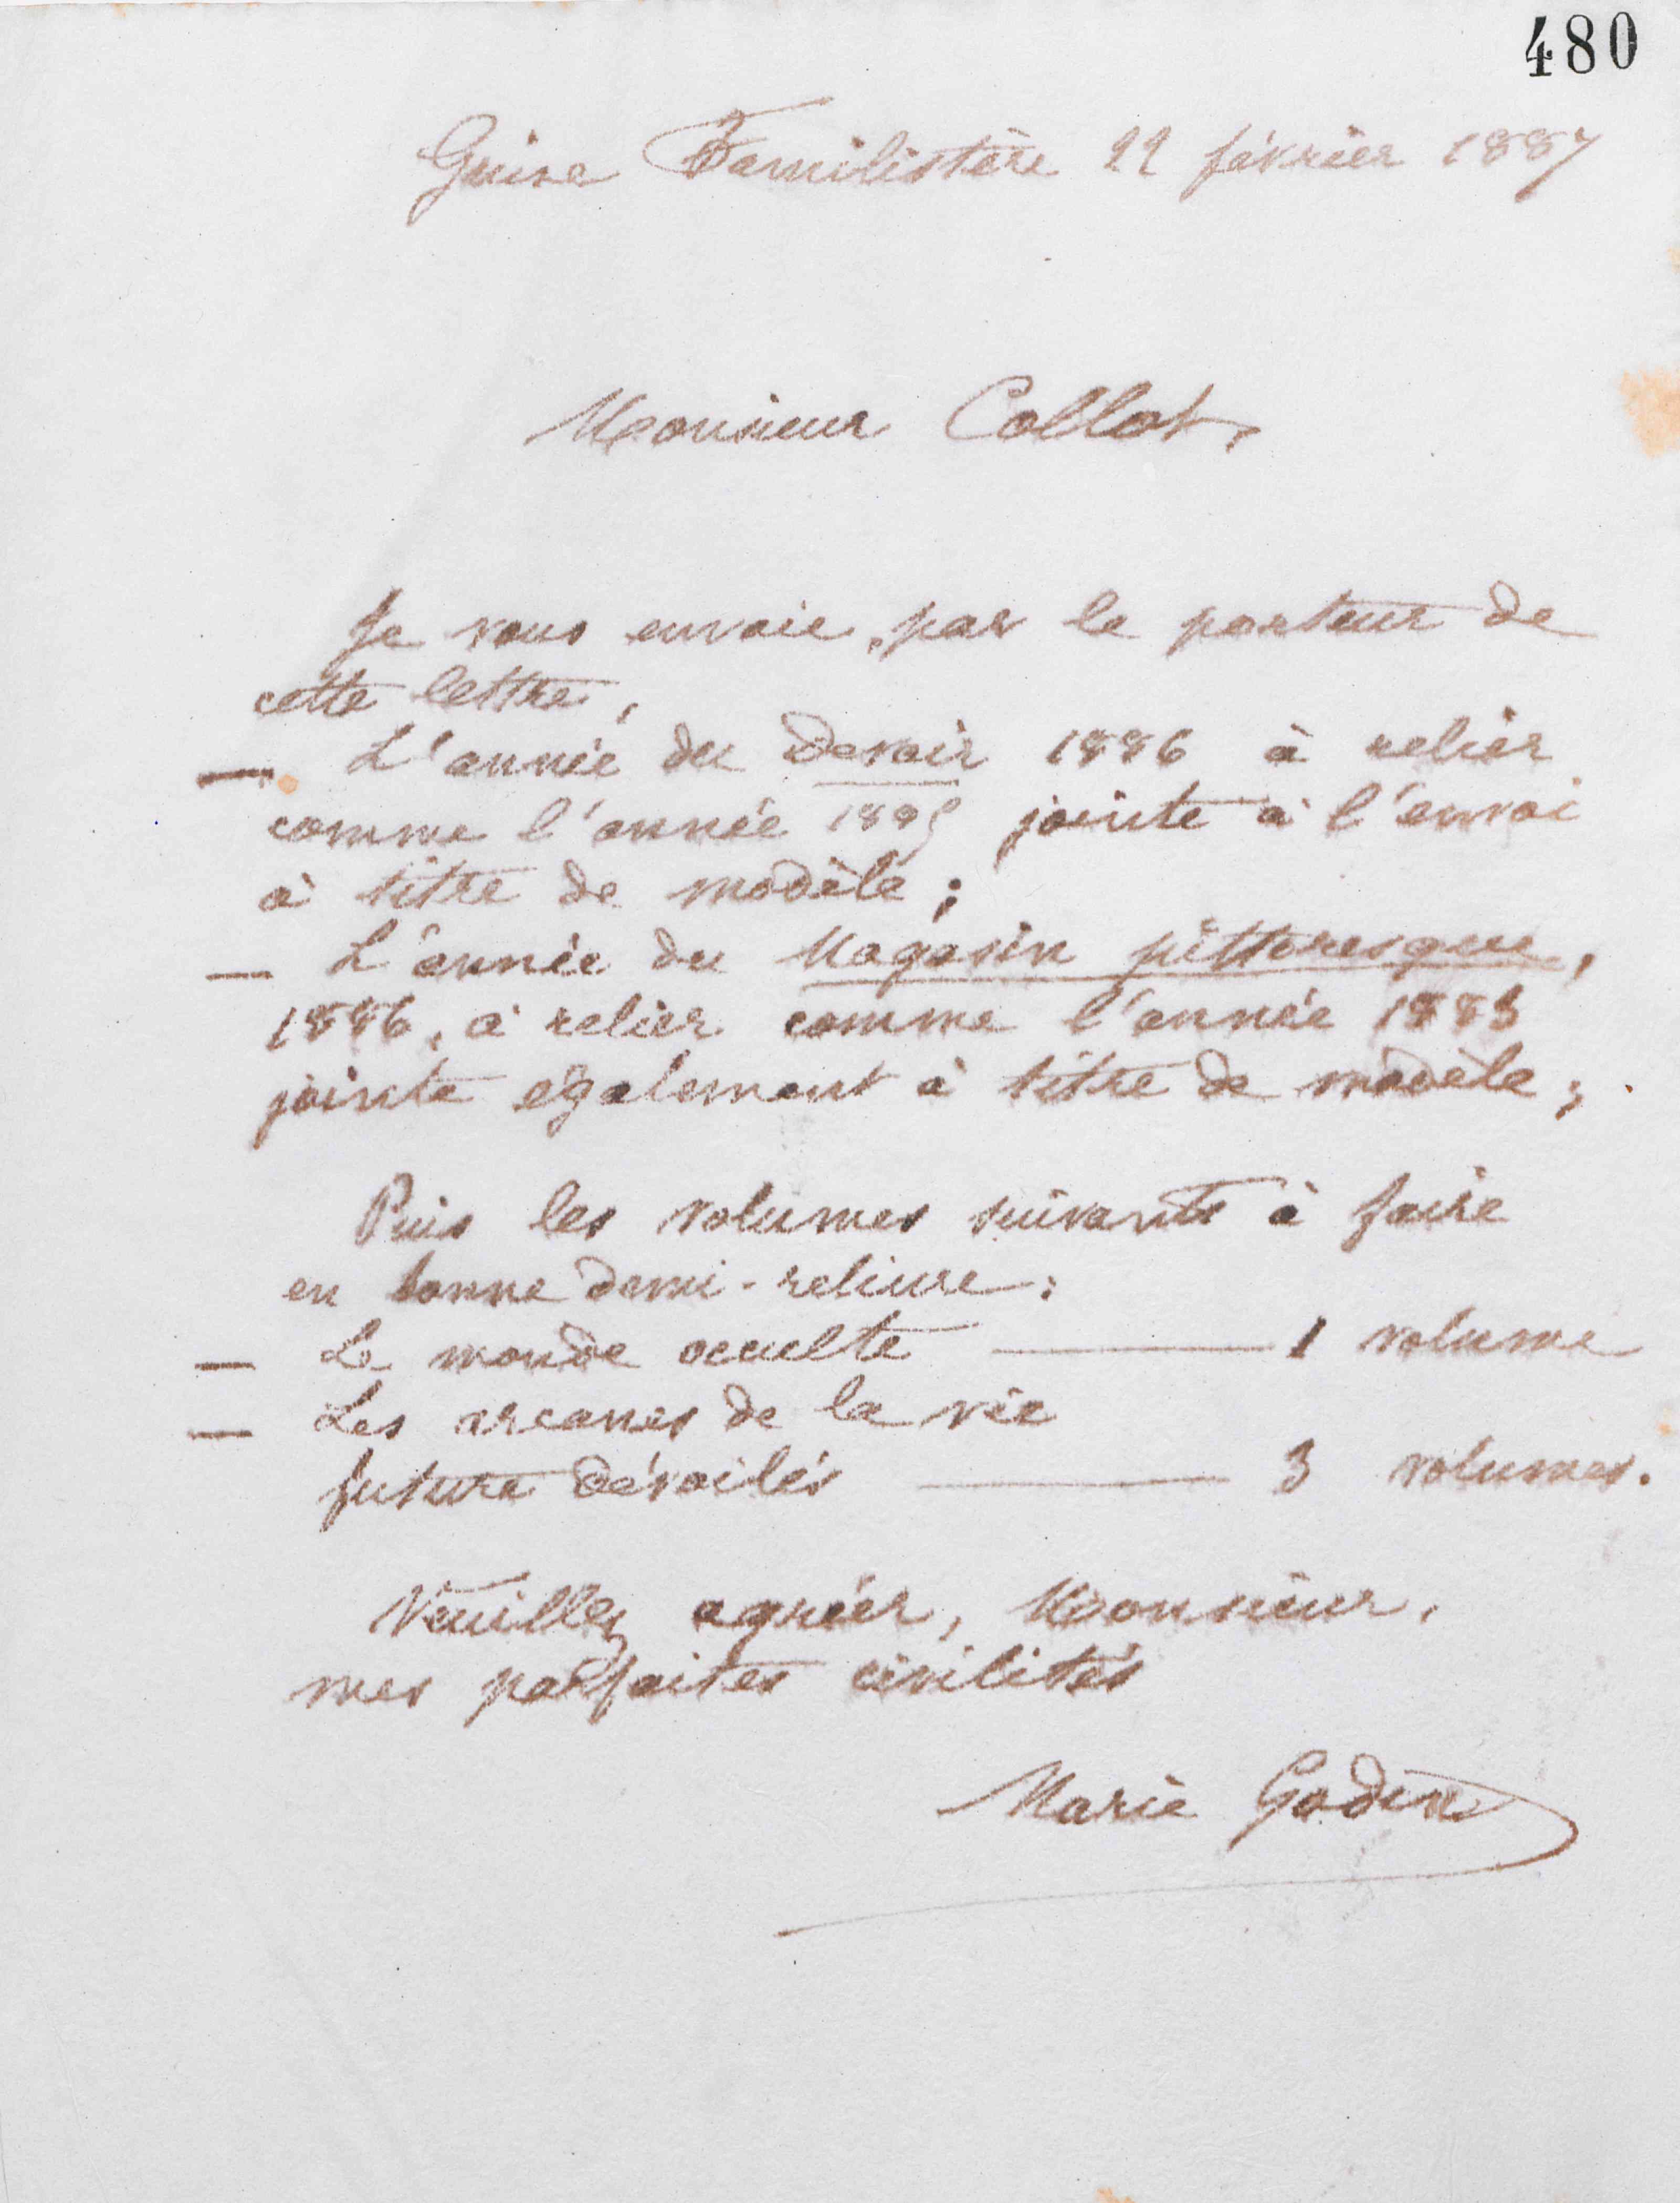 480
Guise Familistère 22 février 1887
Monsieur Collot,
Je vous envoie, par le porteur de
cette lettre,
— L'année du Devoir 1886 à relier
comme l'année 1885 jointe à l'envoi
à titre de modèle ;
— L'année du Magasin pittoresque,
1886, à relier comme l'année 1883
jointe également à titre de modèle ;
Puis les volumes suivants à faire
en bonne demi-reliure :
— Le monde occulte — 1 volume
— Les arcanes de la vie
future dévoilés — 3 volumes.
Veuillez agréer, Monsieur,
mes parfaites civilités
Marie Godin